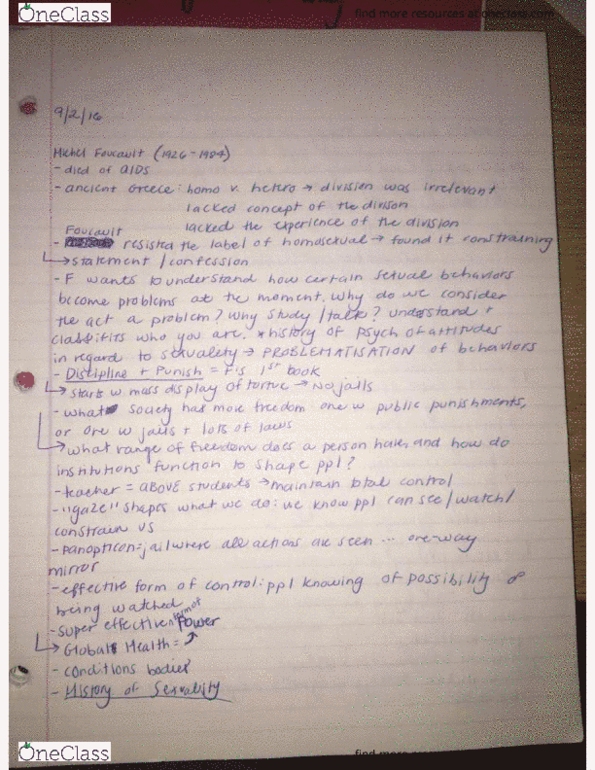 OneClass
find more resources at oneclass.com
9/2/16
Michel Foucault (1926-1984)
- died of AIDS
- ancient Greece: homo v. hetero → division was irrelevant
lacked concept of the divison
lacked the experience of the division
Foucault
- resisted the label of homosexual → found it constraining
↳ statement / confession
- F wants to understand how certain sexual behaviors
become problems at the moment. Why do we consider
the act a problem? Why study / talk? understand +
who you are. *history of psych of attitudes
in regard to sexuality → PROBLEMATISATION of behaviors
- Discipline + Punish = F's 1st book
↳ starts w mass display of tortue → No jails
- what society has more freedom one w public punishments,
or one w jails + lots of laws
↳ what range of freedom does a person have, and how do
institutions function to shape ppl?
- teacher = ABOVE students → maintain total control
- "gaze" shapes what we do: we know ppl can see / watch /
constrain us
- panopticon = jail where all actions are seen ... one-way
mirror
- effective form of control: ppl knowing of possibility of
being watched
- super effective form of Power
↳ Global Health =
- conditions bodies
- History of Sexuality
OneClass